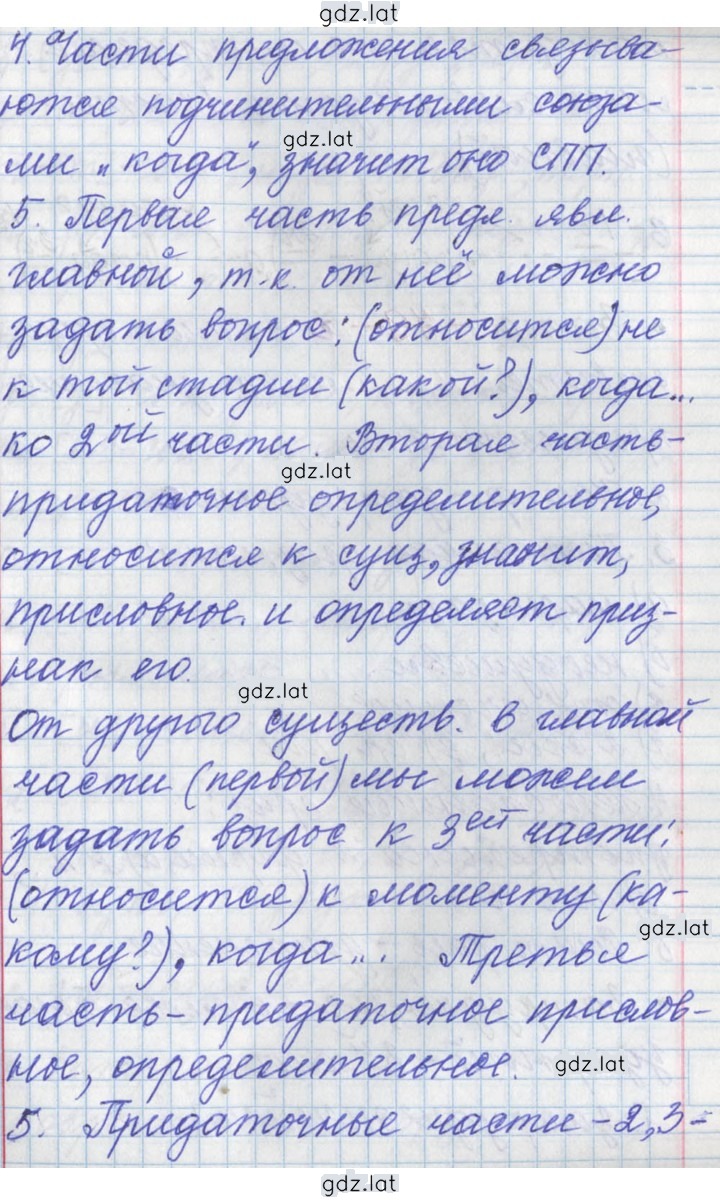 gdz.lat
4. Части предложения связыва-
ются подчинительными союза-
gdz.lat
ми „когда“, значит оно СПП.
5. Первая часть предл. явл.
главной, т.к. от неё можно
задать вопрос: (относится) не
к той стадии (какой?), когда...
ко 2ой части. Вторая часть-
gdz.lat
придаточное определительное,
относится к сущ, значит,
присловное. и определяет приз-
нак его.
gdz.lat
От другого существ. в главной
части (первой) мы можем
задать вопрос к 3ей части:
(относится) к моменту (ка-
gdz.lat
кому?), когда... Третья
часть - придаточное прислов-
ное, определительное.
gdz.lat
5. Придаточные части - 2,3 -
gdz.lat